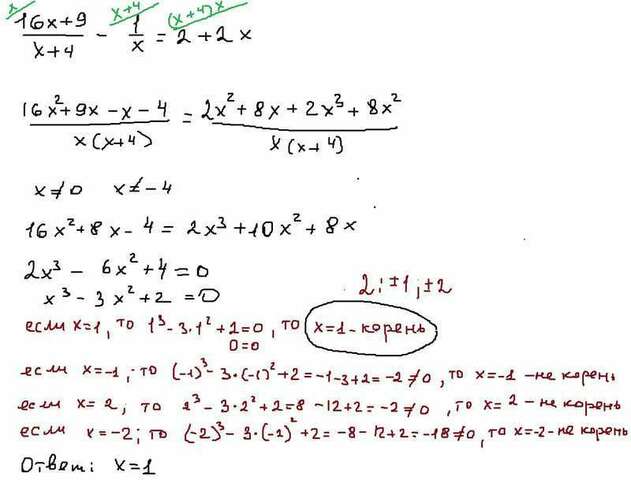 x x+4 (x+4)x
16x+9/x+4 - 1/x = 2+2x
16x²+9x-x-4/x(x+4) = 2x²+8x+2x³+8x²/x(x+4)
x≠0 x≠-4
16x²+8x-4=2x³+10x²+8x
2x³-6x²+4=0
x³-3x²+2=0
2: ±1; ±2
если x=1, то 1³-3·1²+2=0, то x=1-корень
0=0
если x=-1, то (-1)³-3·(-1)²+2=-1-3+2=-2≠0, то x=-1-не корень
если x=2; то 2³-3·2²+2=8-12+2=-2≠0, то x=2-не корень
если x=-2; то (-2)³-3·(-2)²+2=-8-12+2=-18≠0, то x=-2-не корень
Ответ: x=1